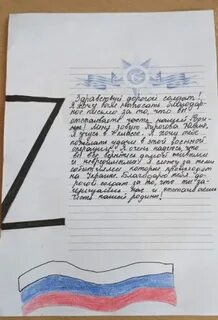 Здравствуй дорогой солдат!
Я хочу вам написать благодар-
ное письмо за то, что вы
отстаиваете честь нашей Роди-
ны! Меня зовут
я учусь в классе. Я хочу тебе
пожелать удачи в этой военной
операции! Я очень надеюсь, что
вы все вернётесь домой живыми
и невредимыми! Я слежу за теми
событиями, которые происходят
на Украине. Благодарю тебя до-
рогой солдат за то, что ты за-
щищаешь нас и отстаиваешь
честь нашей родины!
Z